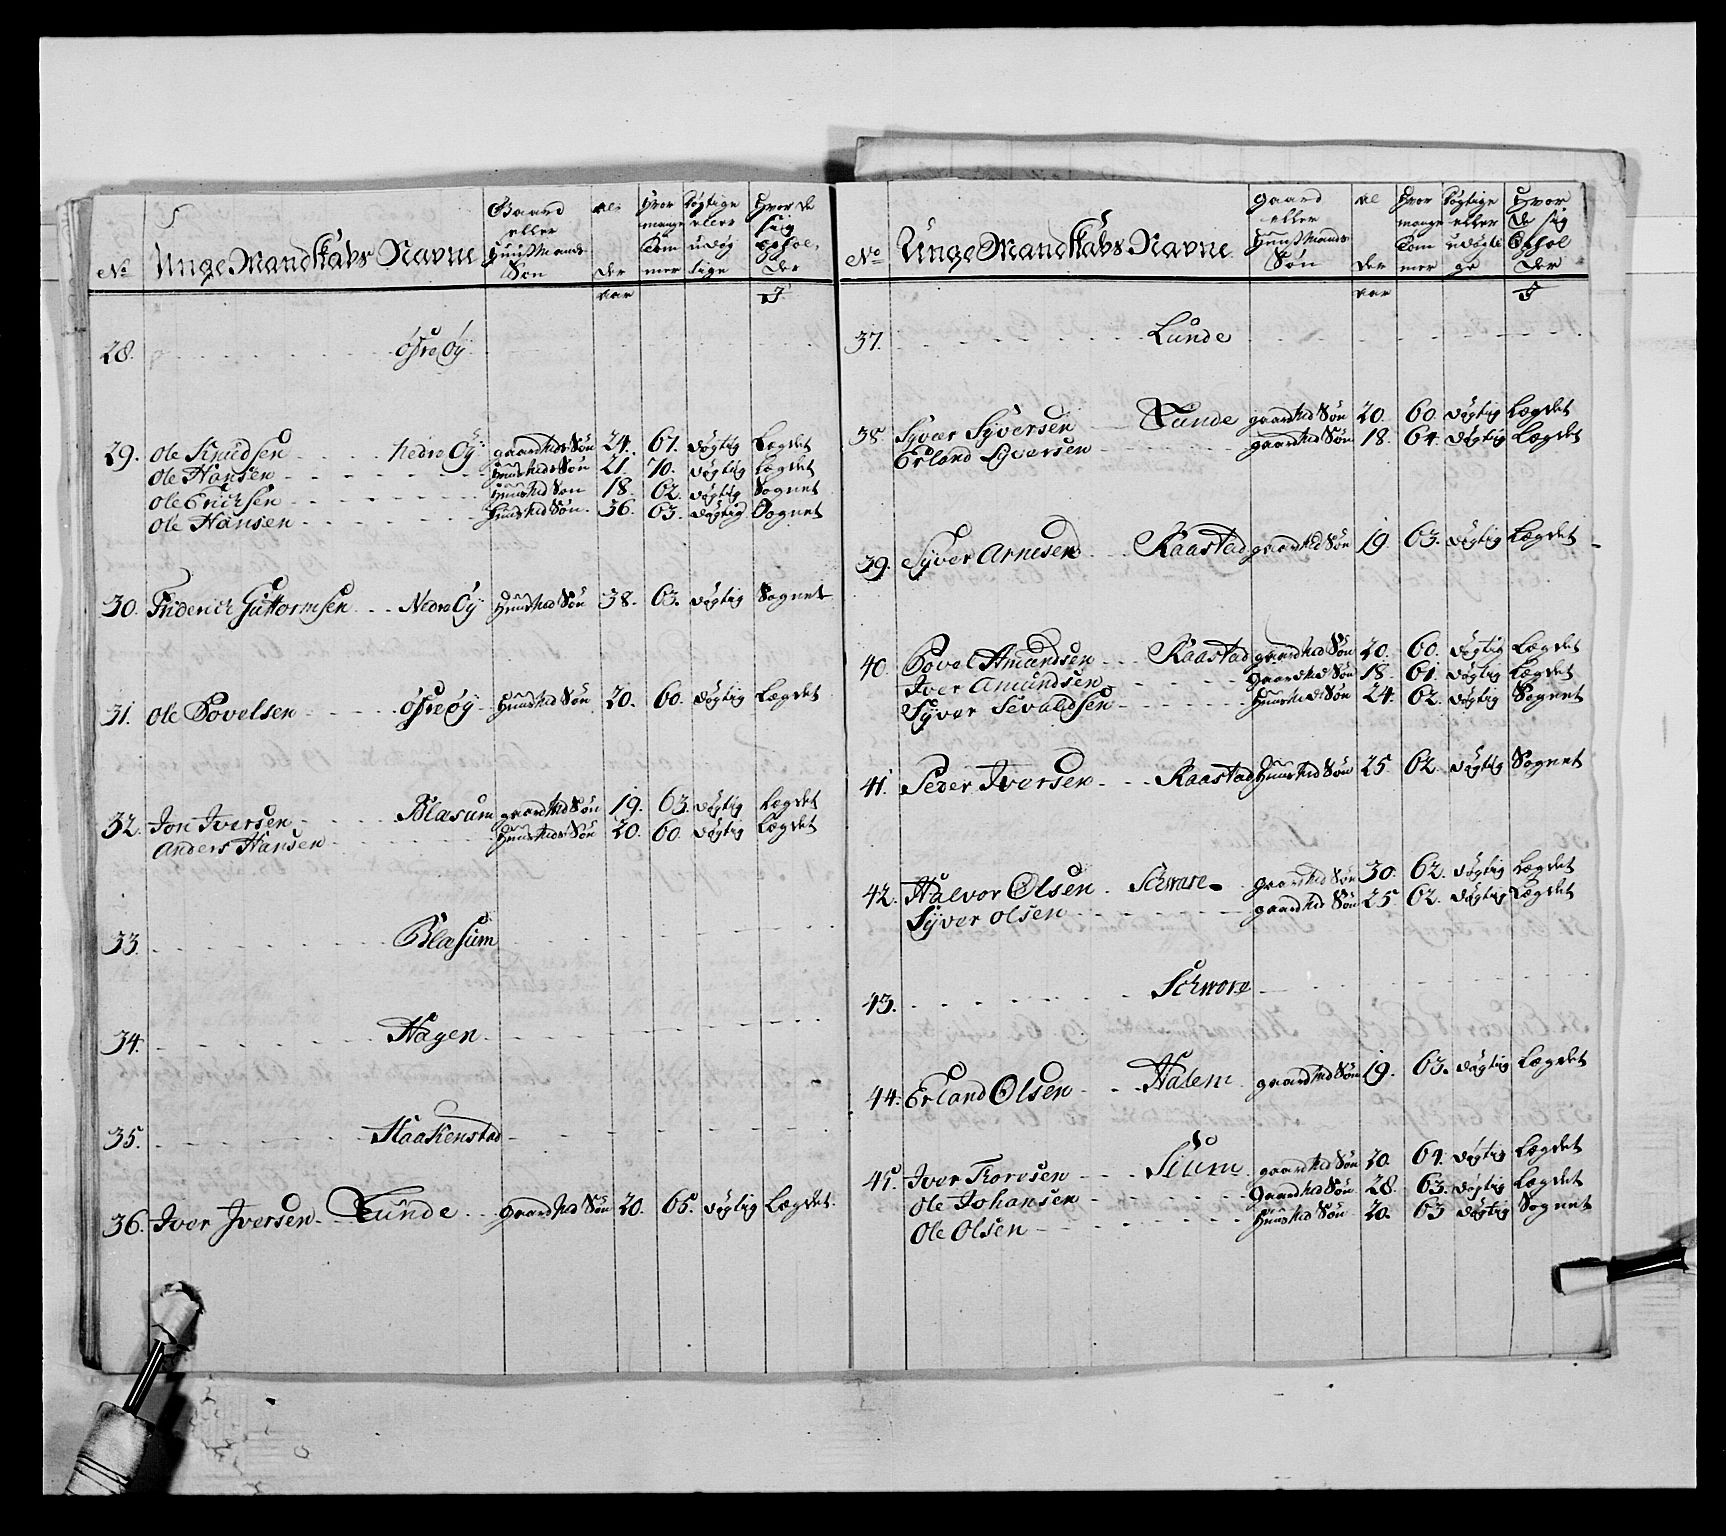 No Unge Mandskabs Navne Gaard eller Huusmands Søn Al der Hvor mange Tom mer Døgtige eller udøg tige Hvor de sig ophol der
aar I
28. Øfre Øy
29. Ole Knudsen Nedre Øy gaardMds Søn 24. 61. døgtig Lægdet
Ole Hansen HuusMds Søn 21. 70. døgtig Lægdet
Ole Erichsen HuusMd Søn 18. 62. døgtig Sognet
Ole Hansen HuusMd Søn. 36. 63. døgtig Sognet
30. Friderich Guttormsen Nedre Øy HuusMd Søn 38. 63. døgtig Sognet
31. Ole Povelsen Øfre Øy HuusMd Søn 20. 60. døgtig Lægdet
32. Jon Iversen Blæsum gaardMds Søn 19. 63. døgtig Lægdet
Anders Hansen HuusMds Søn 20. 60. døgtig Lægdet
33. Blæsum
34. Hagen
35. Haakenstad
36. Iver Iversen Lunde gaardMd Søn 20. 65. døgtig Lægdet
No Unge Mandskabs Navne gaard eller HuusMands Søn Al der Hvor mange Tom mer Døgtige eller udøgti ge Hvor de sig Ophol der
aar I
37. Lunde
38. Syver Syversen Lunde gaardMd Søn 20. 60. døgtig Lægdet
Erland Syversen gaardMd Søn 18. 64. døgtig Lægdet
39. Syver Arnesen Raastad gaardMd Søn 19. 63. døgtig Lægdet
40. Povel Amundsen Raastad gaardMd Søn 20. 60. døgtig Lægdet
Iver Amundsen gaardMd Søn 18. 61. døgtig Lægdet
Syver Sevaldsen HuusMd Søn 24. 62. døgtig Sognet
41. Peder Iversen Raastad HuusMd Søn 25. 62. døgtig Sognet
42. Halvor Olsen Schrare gaardMd Søn 30. 62. døgtig Lægdet
Syver Olsen gaardMd Søn 25 62. døgtig Lægdet
43. Schrare
44. Erland Olsen Halem gaardMd Søn 19. 63. døgtig Lægdet
45. Iver Torersen Sium gaardMd Søn 20. 64. døgtig Lægdet
Ole Johansen gaardMd Søn 28. 63. døgtig Lægdet
Ole Olsen HuusMd Søn 20. 63 døgtig Sognet